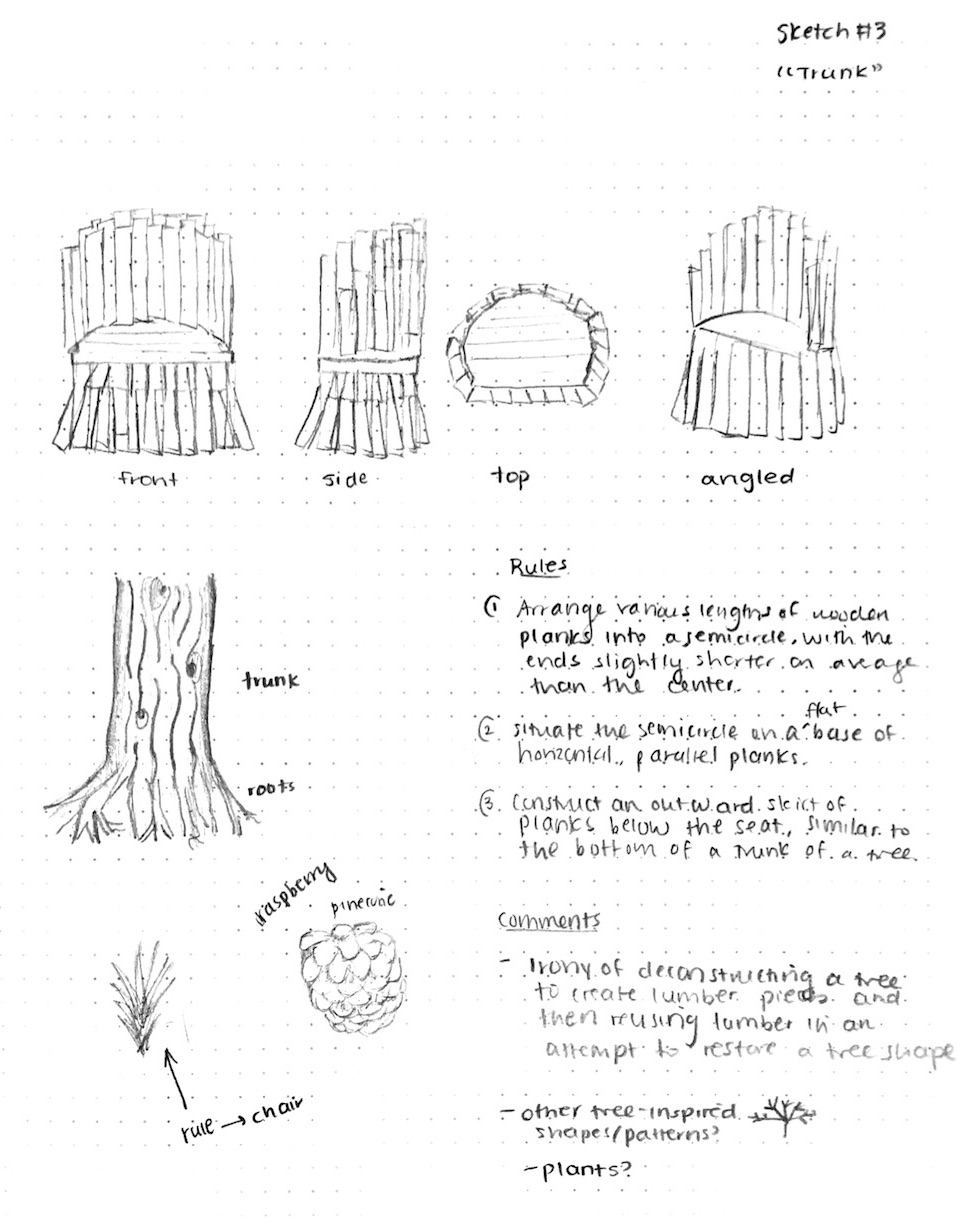 Sketch #3
"Trunk"
front
side
top
angled
trunk
roots
Rules
① Arrange various lengths of wooden
planks into a semicircle, with the
ends slightly shorter on average
than the center.
flat
② Situate the semicircle on a ^ base of
horizontal, parallel planks.
③ Construct an outward skirt of
planks below the seat, similar to
the bottom of a trunk of a tree.
raspberry
pinecone
rule → chair
Comments
- Irony of deconstructing a tree
to create lumber pieces and
then reusing lumber in an
attempt to restore a tree shape
- other tree-inspired
shapes/patterns?
- plants?